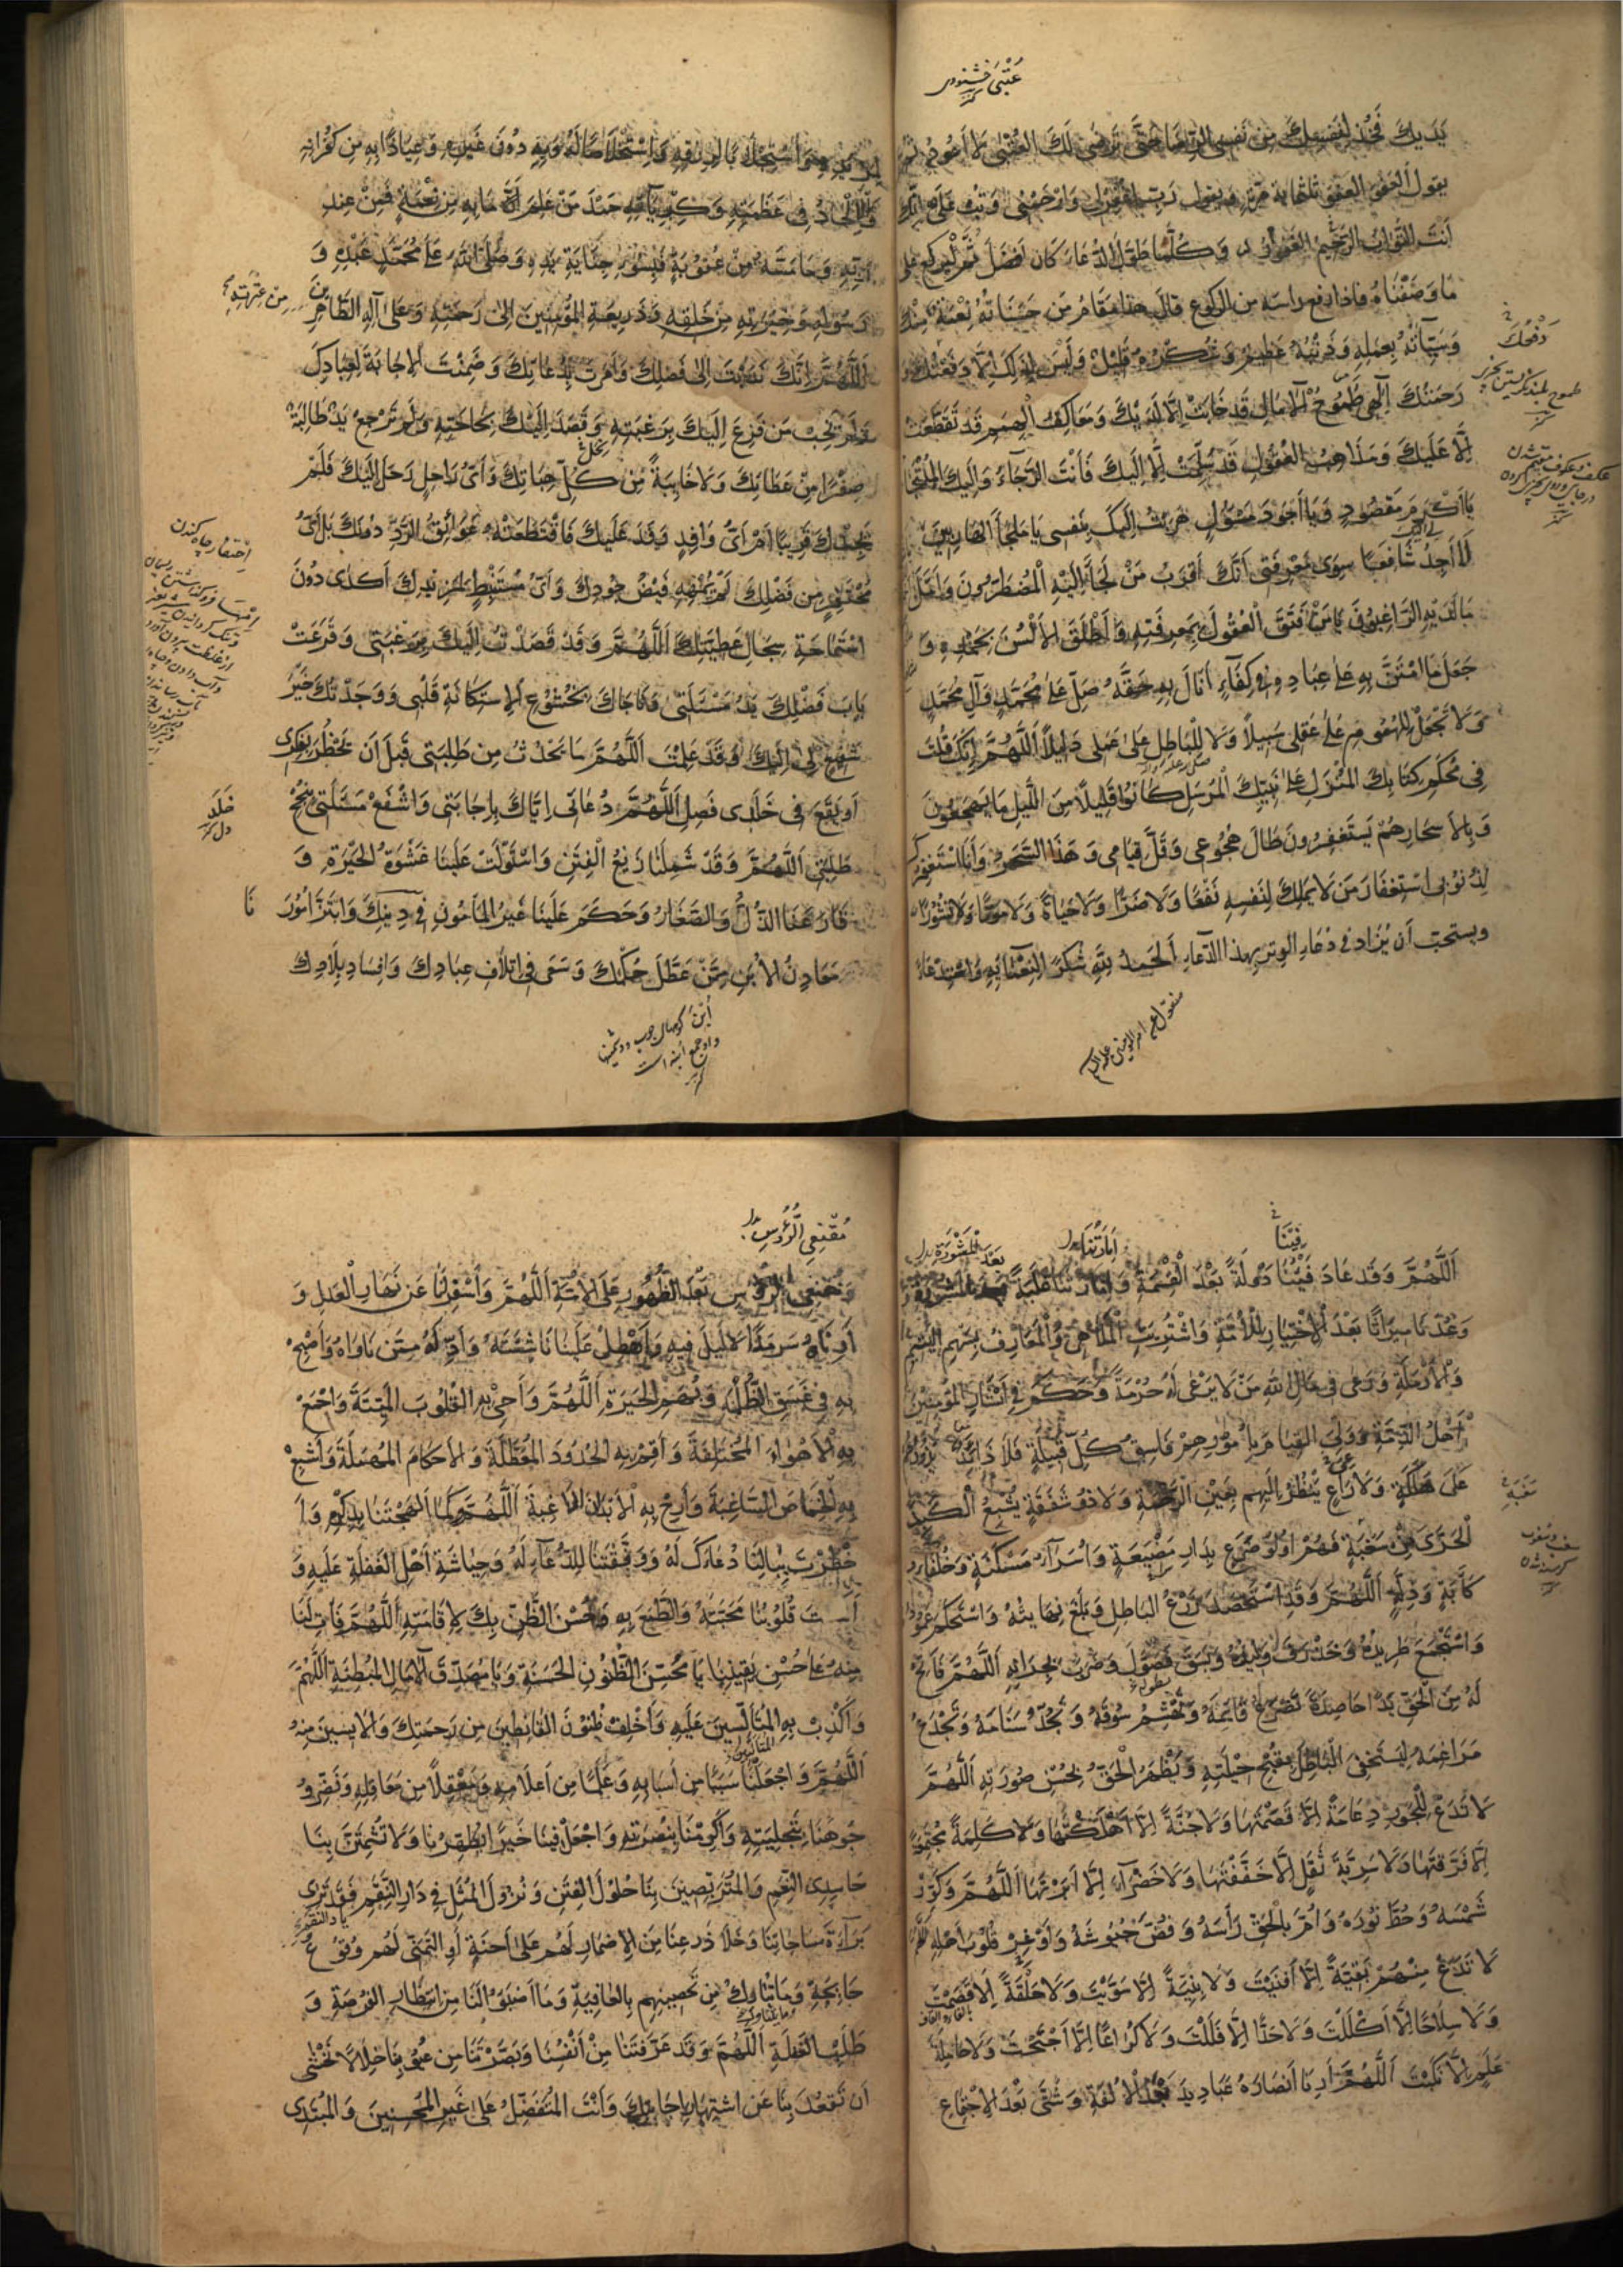 عُتْبَى خشنودى
كنز
يَدَيكَ فَخُذْ لِنَفسِكَ مِن نَفسِى الرِّضَا حَتَّى تَرضَى لَكَ العُتْبَى لَا أَعُودُ ثُم
يقول العَفوَ العَفوَ ثلثمائة مرّة ويقول رَبِّ اغْفِرْلِى وَارْحَمْنِى وَتُبْ عَلَىَّ اِنَّكَ
اَنْتَ التَّوَّابُ الرَّحِيمُ وَكُلَّمَا طَوَّلَ الدُّعَاءَ كَانَ اَفضَلَ ثُمَّ لْيَركَع
مَا وَصَفْنَاهُ فاذا رفع راسه من الركوع قالَ هذا مَقَامُ مَن حَسَنَاتُهُ نِعْمَةٌ مِنْكَ
وَسَيِّاٰتُهُ بِعَمَلِهِ وَذَنْبُهُ عَظِيمٌ وَشُكْرُهُ قَلِيلٌ وَلَيْسَ لِذَلِكَ اِلَّا دَفْعُكَ وَ
رَحمَتُكَ اِلٰهِى طُمُوحُ الْاٰمَالِ قَدخَابَتْ اِلَّا لَدَيْكَ وَمَعَاكِفُ الْهِمَمِ قَد تَقَطَّعَتْ
اِلَّا عَلَيكَ وَمَذَاهِبُ الْعُقُولِ قَد سَمَتْ اِلَّا اِلَيكَ فَاَنْتَ الرَّجَاءُ وَاِلَيكَ المُلْتَجَا
يَا اَكْرَمَ مَقصُودٍ وَيَا اَجْوَدَ مَسؤُلٍ هَرَبْتُ اِلَيكَ بِنَفسِى يَا مَلْجَأَ الهَارِبِينَ
لَا اَجِدُ شَافِعًا سِوَى مَعْرِفَتِى اَنَّكَ اَقْرَبُ مَنْ لَجَاَ اِلَيْهِ الْمُضطَرُّونَ وَاَمَّلَ
مَا لَدَيْهِ الرَّاغِبُونَ يَا مَنْ فَتَقَ الْعُقُولَ بِمَعرِفَتِهِ وَاَطْلَقَ الاَلْسُنَ بِحَمْدِهِ وَ
جَعَلَ مَا امْتَنَّ بِهِ عَلَى عِبَادِهِ كِفَآءً اَنَالَ بِهِ حَقَّهُ صَلِّ عَلَى مُحَمَّدٍ وَآلِ مُحَمَّدٍ
وَلَا تَجْعَل لِلهُمُومِ عَلَى عَقلِى سَبِيلًا وَلَا لِلبَاطِلِ عَلَى عَمَلِى دَلِيلًا اَللَّهُمَّ اِنَّكَ قُلتَ
فِى مُحكَمِ كِتَابِكَ المُنْزَلِ عَلَى نَبِيِّكَ الْمُرسَلِ كَانُوا قَلِيلًا مِنَ اللَّيلِ مَا يَهجَعُونَ
وَبِالاَسحَارِهُمْ يَستَغفِرُونَ طَالَ هُجُوعِى وَقَلَّ قِيَامِى وَهَذَا السَّحَرُ وَاَنَا اَستَغفِرُكَ
لِذُنُوبِى اسْتِغفَارَ مَن لَا يَملِكُ لِنَفسِهِ نَفْعًا وَلَا ضَرًّا وَلَا حَيَاةً وَلَا مَوتًا وَلَا نُشُورًا
ويستحبّ أن يُزاد فى دعاء الوتر بهذا الدّعاء اَلحَمدُ لِلّهِ شُكرًا لِنَعْمَآئِهِ وَاسْتِدْعَاءً
دَفْعُكَ
منقول عن امير المؤمنين عليه السلام
لِمَزِيدِهِ وَاسْتِخلَاصًا لَهُ وَبِهِ دُونَ غَيرِهِ وَعِيَاذًا بِهِ مِن كُفْرَانِهِ
وَالاِلْحَادِ فِى عَظَمَتِهِ وَكِبْرِيَآئِهِ حَمْدَ مَنْ عَلِمَ اَنَّ مَا بِهِ مِن نِعْمَةٍ فَمِنْ عِندِ
رَبِّهِ وَمَا مَسَّهُ مِنْ عُقُوبَةٍ فَبِسُوءِ جِنَايَةِ يَدِهِ وَصَلَّى اللهُ عَلَى مُحَمَّدٍ عَبْدِهِ وَ
رَسُولِهِ وَخِيَرَتِهِ مِنْ خَلقِهِ وَذَرِيعَةِ المُؤْمِنِينَ اِلَى رَحمَتِهِ وَعَلَى آلِهِ الطَّاهِرِينَ
مِن عِتْرَتِهِ
اَللَّهُمَّ اِنَّكَ نَدَبْتَ اِلَى فَضلِكَ وَاَمَرتَ بِدُعَائِكَ وَضَمِنْتَ الاِجَابَةَ لِعِبَادِكَ
وَلَم تُخَيِّبْ مَن فَزِعَ اِلَيكَ بِرَغبَتِهِ وَقَصَدَ اِلَيْكَ بِحَاجَتِهِ وَلَمْ تَرْجِعْ يَدٌ طَالِبَةٌ
صِفْرًا مِنْ عَطَائِكَ وَلَا خَايِبَةً مِّنْ نِحَلِ هِبَاتِكَ وَاَىُّ رَاحِلٍ رَحَلَ اِلَيكَ فَلَمْ
يَجِدْكَ قَرِيبًا اَمْ اَىُّ وَافِدٍ وَفَدَ عَلَيكَ فَاقتَطَعَتْهُ عَوَائِقُ الرَّدِّ دُونَكَ بَل اَىُّ
مُحْتَفِرٍ مِن فَضْلِكَ لَمْ يُمْهِهِ فَيْضُ جُودِكَ وَاَىُّ مُسْتَنْبِطٍ لِمَزِيدِكَ اَكْدَى دُونَ
اسْتِمَاحَةِ سِجَالِ عَطِيَّتِكَ اَللَّهُمَّ وَقَد قَصَدْتُ اِلَيكَ بِرَغبَتِى وَقَرَعَتْ
بَابَ فَضْلِكَ يَدُ مَسْئَلَتِى وَنَاجَاكَ بِخُشُوعِ الاِسْتِكَانَةِ قَلْبِى وَوَجَدْتُكَ خَيْرَ
شَفِيعٍ لِى اِلَيكَ وَقَد عَلِمْتَ اَللَّهُمَّ مَا يَحْدُثُ مِن طَلِبَتِى قَبلَ اَن يَخْطُرَ بِفِكرِى
اَو يَقَعَ فِى خَلَدِى فَصِلِ اَللَّهُمَّ دُعَائِى اِيَّاكَ بِاِجَابَتِى وَاشْفَعْ مَسْئَلَتِى بِنُجْحِ
طَلِبَتِى اَللَّهُمَّ وَقَد شَمِلَنَا زَيْغُ الْفِتَنِ وَاسْتَوْلَتْ عَلَينَا غَشْوَةُ الحَيْرَةِ وَ
قَارَعَنَا الذُّلُّ وَالصَّغَارُ وَحَكَمَ عَلَينَا غَيرُ المَأمُونِينَ فِى دِينِكَ وَابْتَزَّ اُمُورَ
نَا
مَعَادِنُ الاُبَنِ مِمَّنْ عَطَّلَ حُكْمَكَ وَسَعَى فِى اِتْلَافِ عِبَادِكَ وَاِفسَادِ بِلَادِكَ
خَلَد
دل كنز
فِيْئُنَا
اَللَّهُمَّ وَقَد عَادَ فَيْئُنَا دُولَةً بَعْدَ الْقِسْمَةِ وَاِمَارَتُنَا غَلَبَةً بَعْدَ المَشُورَةِ وَ
وَعُدْنَا مِيرَاثًا بَعْدَ الْاِخْتِيَارِ لِلاُمَّةِ وَاشْتُرِيَتِ المَلَاهِى وَالْمَعَازِفُ بِسَهمِ اليَتِيمِ
وَالْاَرْمَلَةِ وَرَعَى فِى مَالِ اللهِ مَنْ لَا يَرعَى لَهُ حُرْمَةً وَحَكَمَ فِى اَبْشَارِ المُؤمِنِينَ
اَهلُ الذِّمَّةِ وَوَلِىَ القِيَامَ بِاُمُورِهِم فَاسِقُ كُلِّ قَبِيلَةٍ فَلَا ذَائِدٌ يَذُودُهُم
عَن هَلَكَةٍ وَلَا رَاعٍ يَنْظُرُ اِلَيهِم بِعَينِ الرَّحْمَةِ وَلَا ذُو شَفَقَةٍ يُشْبِعُ الْكَبِدَ
الْحَرَّى مِنْ سَغَبَةٍ فَهُمْ اُولُو ضَرَعٍ بِدَارِ مَضْيَعَةٍ وَاُسَرَآءُ مَسْكَنَةٍ وَحُلَفَاءُ
كَآبَةٍ وَذِلَّةٍ اَللَّهُمَّ وَقَدِ اسْتَحْصَدَ زَرْعُ البَاطِلِ وَبَلَغَ نِهَايَتَهُ وَاسْتَحكَمَ عَمُودُهُ
وَاسْتَجْمَعَ طَرِيدُهُ وَخَذْرَفَ وَلِيدُهُ وَبَسَقَ فَرعُهُ وَضَرَبَ بِجِرَانِهِ اَللَّهُمَّ فَاَتِحْ
لَهُ مِنَ الْحَقِّ يَدًا حَاصِدَةً تَصْرَعُ قَائِمَهُ وَتَهْشِمُ سُوقَهُ وَتَجُذُّ سَنَامَهُ وَتَجْدَعُ
مَرَاغِمَهُ لِيَستَخفِىَ الْبَاطِلُ بِقُبْحِ حِلْيَتِهِ وَيَظْهَرَ الْحَقُّ بِحُسْنِ صُورَتِهِ اَللَّهُمَّ
لَا تَدَعْ لِلْجَورِ دِعَامَةً اِلَّا قَصَمْتَهَا وَلَا جُنَّةً اِلَّا هَتَكْتَهَا وَلَا كَلِمَةً مُجْتَمِعَةً
اِلَّا فَرَّقتَهَا وَلَا سَرِيَّةَ ثِقْلٍ اِلَّا خَفَّفْتَهَا وَلَا خَضْرَآءَ اِلَّا اَبَرْتَهَا اَللَّهُمَّ وَكَوِّرْ
شَمْسَهُ وَحُطَّ نُورَهُ وَاُمَّ بِالْحَقِّ رَأسَهُ وَفُضَّ جُيُوشَهُ وَاَوْغِرْ قُلُوبَ اَهْلِهِ
لَا تَدَعْ مِنْهُمْ بَقِيَّةً اِلَّا اَفنَيْتَ وَلَا بِنيَةً اِلَّا سَوَّيْتَ وَلَا حَلْقَةً اِلَّا فَصَمْتَ
وَلَا سِلَاحًا اِلَّا اَكْلَلْتَ وَلَا حَدًّا اِلَّا فَلَلْتَ وَلَا كُرَاعًا اِلَّا اجْتَحْتَ وَلَا حَامِلَةَ
عَلَمٍ اِلَّا نَكَبْتَ اَللَّهُمَّ اَرِنَا اَنْصَارَهُ عَبَادِيدَ بَعْدَ الْاُلْفَةِ وَشَتَّى بَعْدَ الاِجْتِمَاعِ
سَغَبَةٍ
مُقْنِعِى الرُّؤُسِ
وَمُقْنِعِى الرُّؤُسِ بَعْدَ الظُّهُورِ عَلَى الاُمَّةِ اَللَّهُمَّ وَاَسْفِرْ لَنَا عَن نَهَارِ الْعَدلِ وَ
اَرِنَاهُ سَرمَدًا لَا لَيلَ فِيهِ وَاَهْطِلْ عَلَينَا نَاشِئَتَهُ وَاَدِلْهُ مِمَّن نَاوَاهُ وَاَصْبِحْ
بِهِ فِى غَسَقِ الظُّلَمِ وَبُهَمِ الحَيرَةِ اَللَّهُمَّ وَاَحْىِ بِهِ الْقُلُوبَ المَيِّتَةَ وَاجْمَعْ
بِهِ الْاَهْوَاءَ المُخْتَلِفَةَ وَاَقِمْ بِهِ الحُدُودَ المُعَطَّلَةَ وَالاَحكَامَ المُهمَلَةَ وَاَشْبِعْ
بِهِ الْخِمَاصَ السَّاغِبَةَ وَاَرِحْ بِهِ الْاَبْدَانَ اللَّاغِبَةَ اَللَّهُمَّ وَكَمَا اَلهَجْتَنَا بِذِكْرِهِ وَاَ
خْطَرْتَ بِبَالِنَا دُعَاءَكَ لَهُ وَوَفَّقْتَنَا لِلدُّعَآءِ لَهُ وَحِيَاشَةِ اَهْلِ الغَفلَةِ عَلَيهِ وَ
قُلُوبَنَا مَحَبَّتَهُ وَالطَّمَعَ بِهِ وَحُسْنَ الظَّنِّ بِكَ لِاِقَامَتِهِ اَللَّهُمَّ فَاٰتِ لَنَا
مِنْهُ عَلَى حُسْنِ يَقِينِنَا يَا مُحَقِّقَ الظُّنُونِ الحَسَنَةِ وَيَا مُصَدِّقَ الْآمَالِ المُبْطِئَةِ اَللَّهُمَّ
وَاَكْذِبْ بِهِ الْمُتَاَلِّينَ عَلَيهِ وَاَخْلِفْ ظُنُونَ القَانِطِينَ مِن رَحمَتِكَ وَالآيِسِينَ مِنهُ
اَللَّهُمَّ وَاجْعَلْنَا سَبَبًا مِن اَسبَابِهِ وَعَلَمًا مِن اَعلَامِهِ وَمَعْقِلًا مِن مَعَاقِلِهِ وَنَضِّرْ وُ
جُوهَنَا بِتَحْلِيَتِهِ وَاَكْرِمْنَا بِنُصْرَتِهِ وَاجْعَلْ فِينَا خَيرًا يُظهِرُنَا وَلَا تُشْمِتَنَّ بِنَا
حَاسِدِى النِّعَمِ وَالمُتَرَبِّصِينَ بِنَا حُلُولَ الفِتَنِ وَنُزُولَ المُثَلِ فِى دَارِ النِّقَمِ فَقَد تَرَى
بَرَآءَةَ سَاحَاتِنَا وَخَلَاَ ذَرعِنَا مِنَ الاِضمَارِ لَهُم عَلَى اِحْنَةٍ اَوِ التَّمَنِّى لَهُم وُقُوعَ
جَائِحَةٍ وَمَا تَنَازَلَ مِن تَحصِينِهِم بِالعَافِيَةِ وَمَا اَضبَؤُا لَنَا مِن انتِظَارِ الفُرْصَةِ وَ
طَلَبِ الغَفلَةِ اَللَّهُمَّ وَقَد عَرَّفتَنَا مِنْ اَنْفُسِنَا وَبَصَّرْتَنَا مِن عُيُوبِنَا خِلَالًا نَخْشَى
اَن تَقْعُدَ بِنَا عَنِ اشتِهَارِ اِجَابَتِكَ وَاَنْتَ المُتَفَضِّلُ عَلَى غَيرِ المُحْسِنِينَ وَالمُبْتَدِى